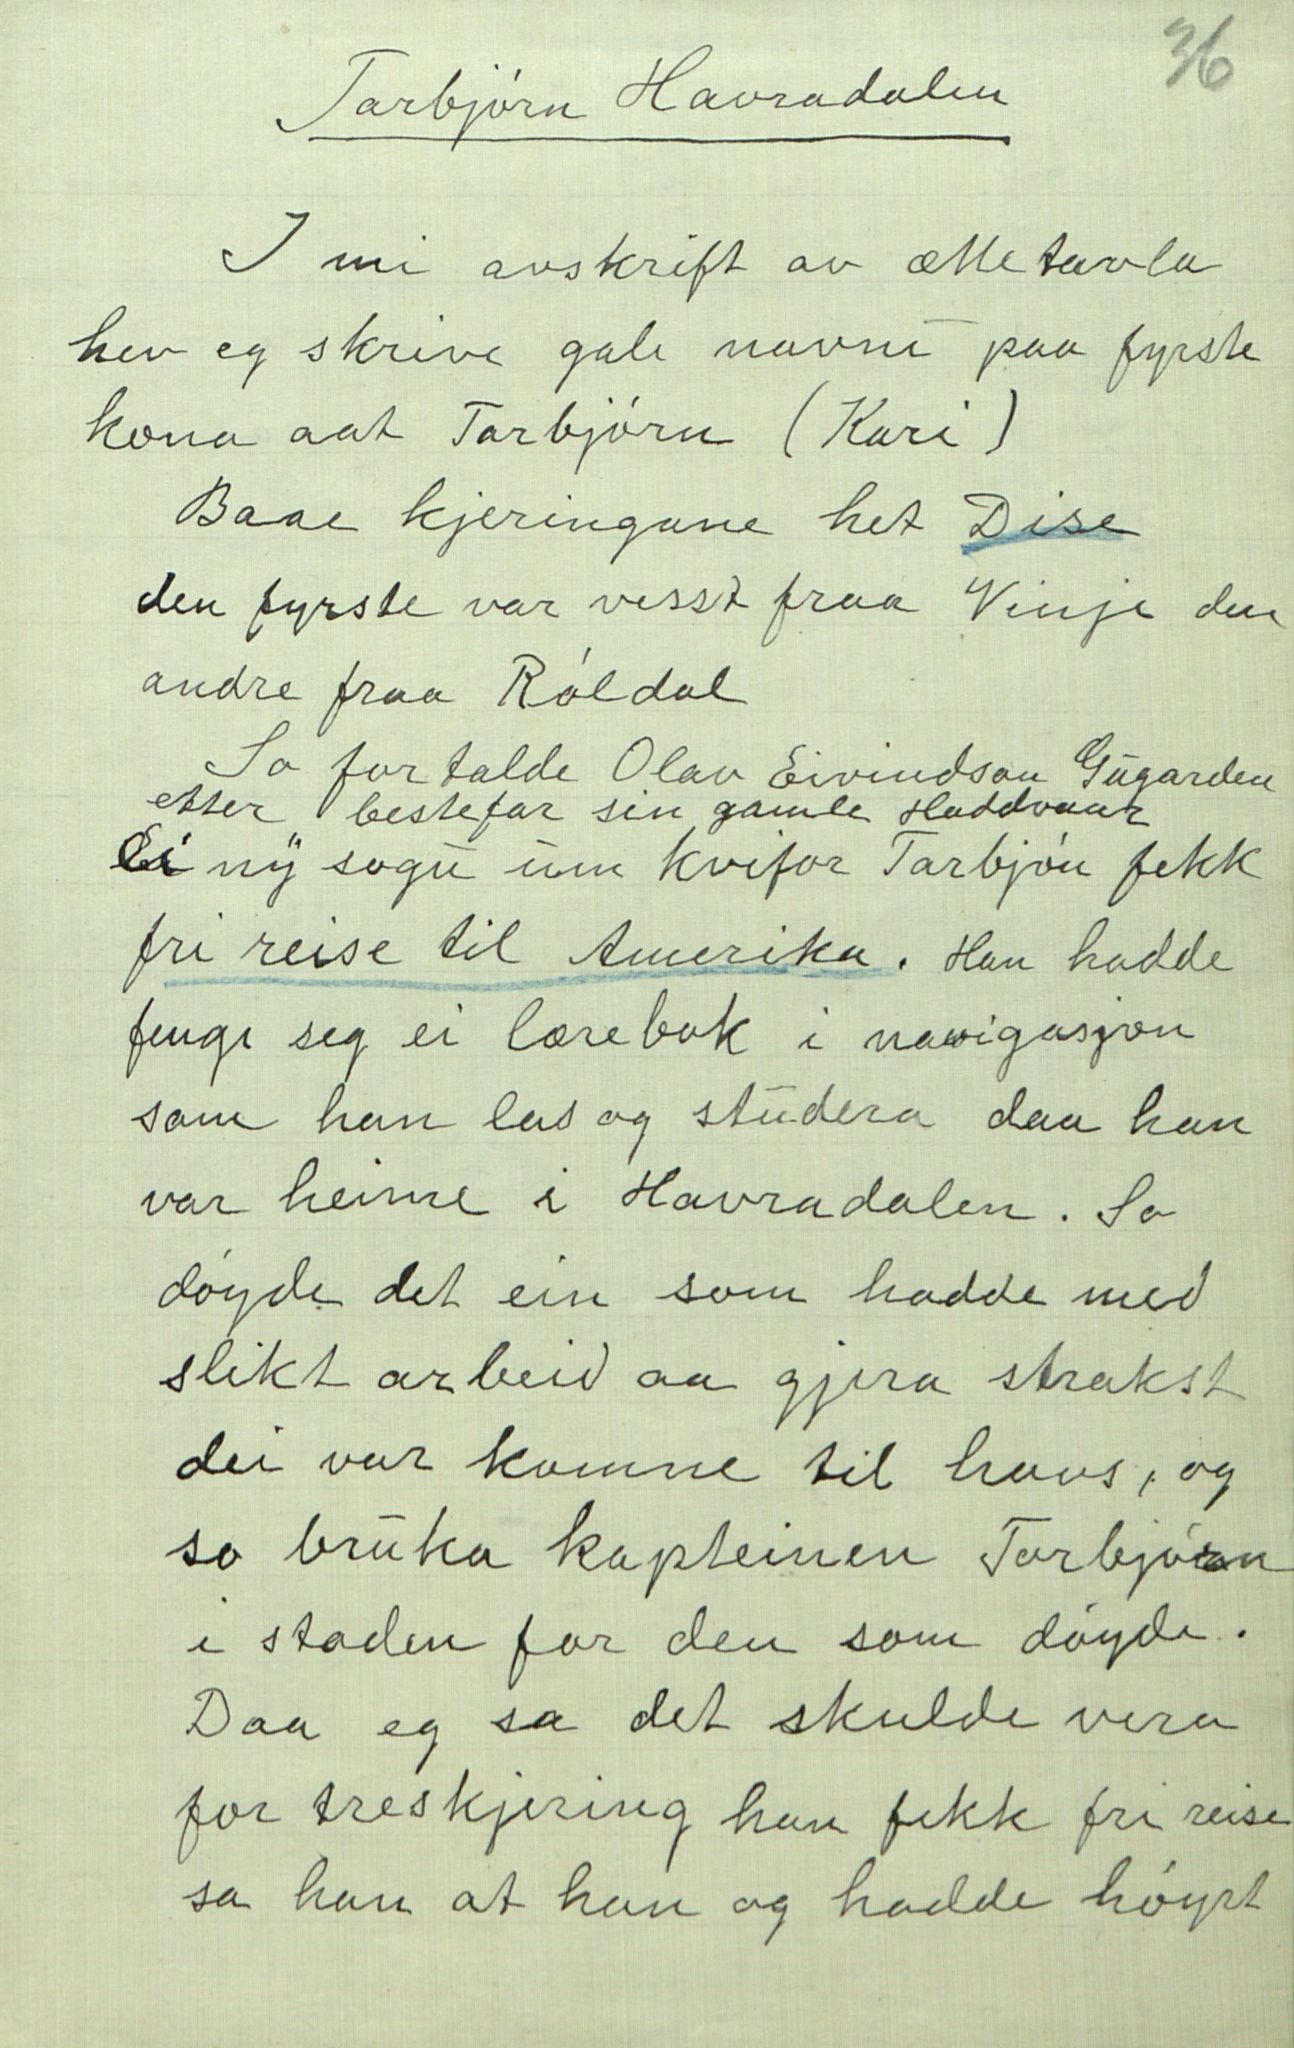 36
Tarbjórn Havradalen
I mi avskrift av ættetavla
hev eg skrive gale navni paa fyrste
kona aat Tarbjórn (Kari)
Baae kjeringane het Dise
den fyrste var visst fraa Vinje den
andre fraa Róldal
So fortalde Olav Eivindson Gugarden
etter bestefar sin gamle Haddvaar
Ei ny sogu um kvifor Tarbjón fekk
fri reise til Amerika. Han hadde
fengi seg ei lærebok i navigasjon
som han las og studera daa han
var heime i Havradalen. So
dóyde det ein som hadde med
slikt arbeid aa gjera strakst
dei var komne til havs, og
so bruka kapteinen Tarbjórn
i staden for den som dóyde.
Daa eg sa det skulde vera
for treskjering han fekk fri reise
sa han at han og hadde hóyrt